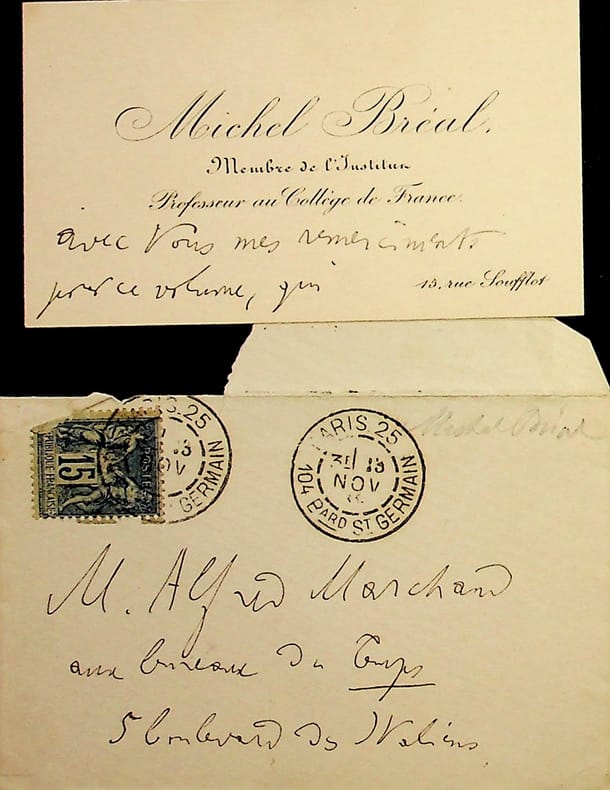 Michel Bréal.
Membre de l'Institut
Professeur au Collège de France.
avec tous mes remerciments
pour ce volume, qui
15, rue Soufflot
PARIS. 25
13
NOV
ST GERMAIN
POSTES
15
REPUBLIQUE FRANÇAISE
PARIS 25
3E 13
NOV
104 BARD ST GERMAIN
Michel Bréal
M. Alfred Marchand
aux bureaux du Temps
5 boulevard des Italiens